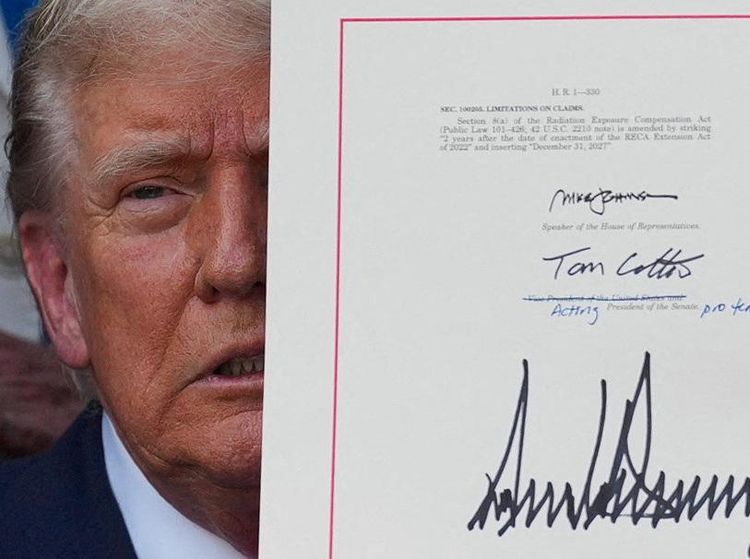 H. R. 1—330
SEC. 100205. LIMITATIONS ON CLAIMS.
Section 8(a) of the Radiation Exposure Compensation Act
(Public Law 101–426; 42 U.S.C. 2210 note) is amended by striking
“2 years after the date of enactment of the RECA Extension Act
of 2022” and inserting “December 31, 2027”.
Mike Johnson
Speaker of the House of Representatives.
Tom Cotton
Vice President of the United States and
Acting President of the Senate. pro tem